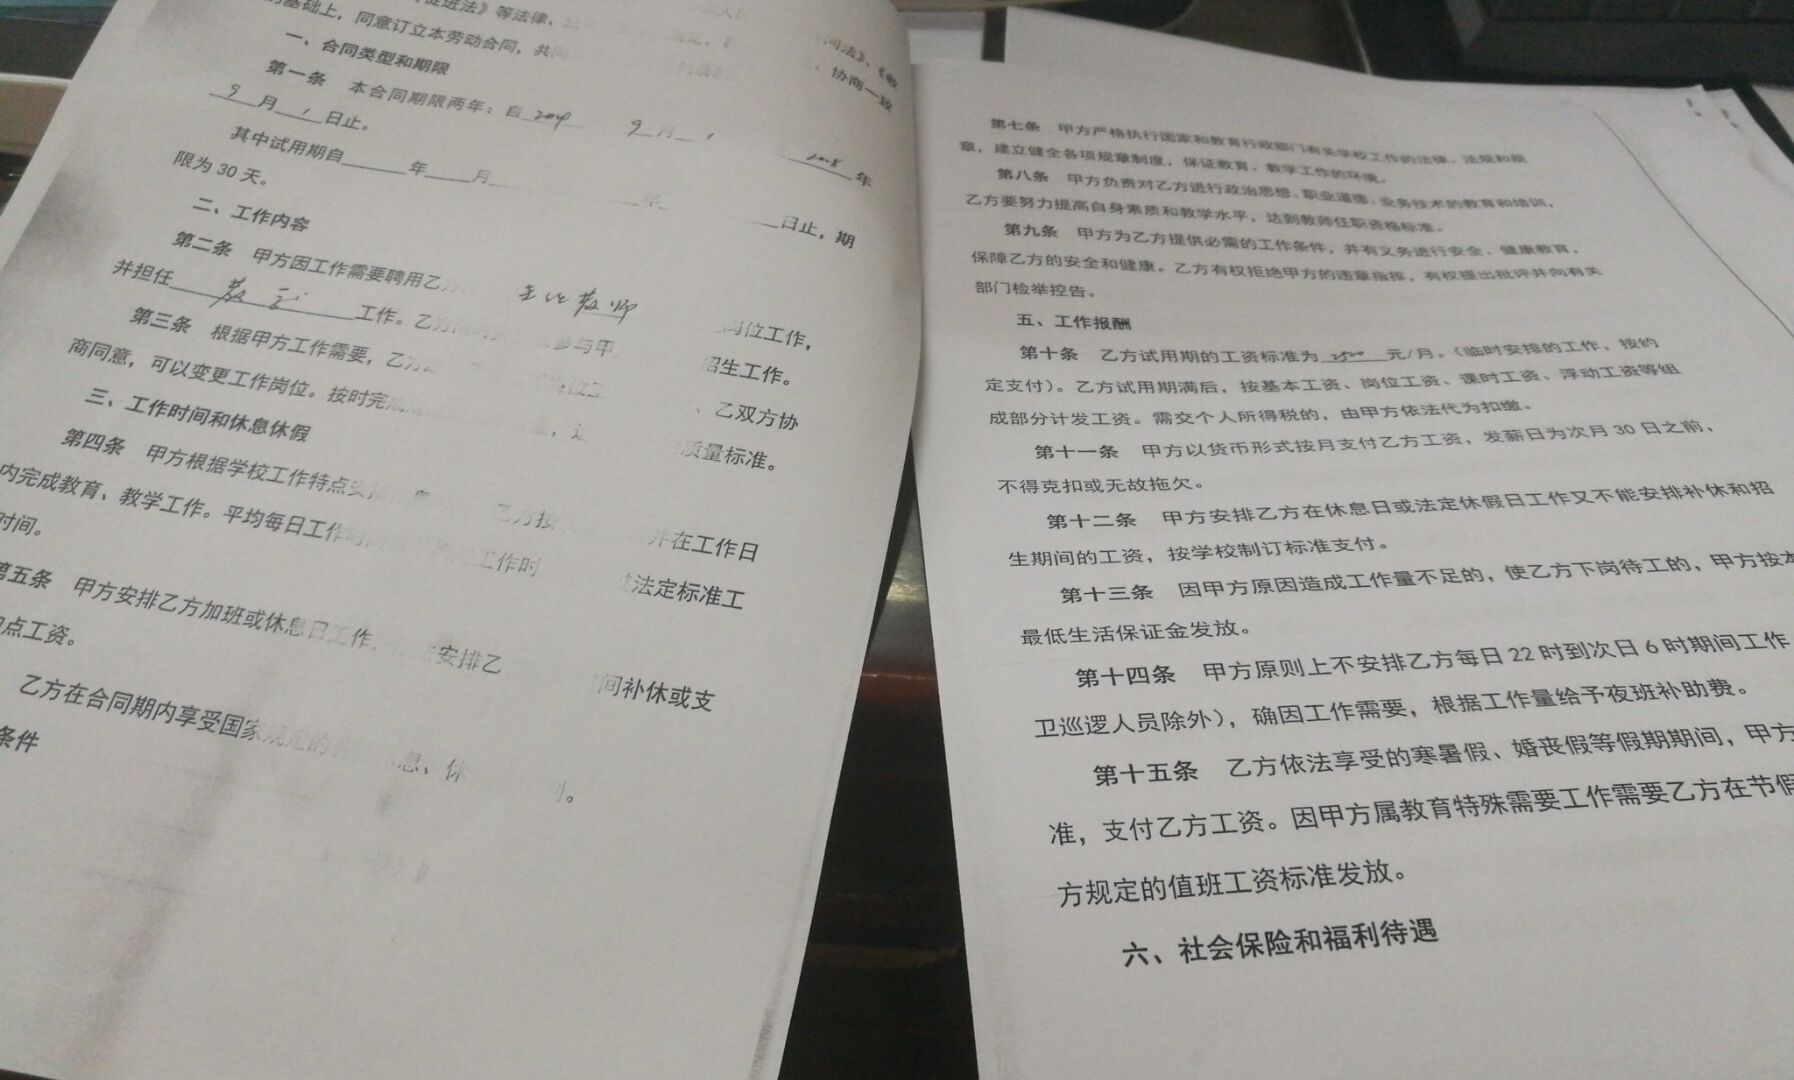 促进法》等法律、
基础上，同意订立本劳动合同，共同
协商一致
一、合同类型和期限
第一条 本合同期限两年：自 9 月
年
9 月 1 日止。
其中试用期自 年 月 年 日止，期
限为 30 天。
二、工作内容
第二条 甲方因工作需要聘用乙 岗位工作，
并担任 工作。乙方 参与甲 招生工作。
第三条 根据甲方工作需要，乙方 乙双方协
商同意，可以变更工作岗位。按时完成 质量标准。
三、工作时间和休息休假
第四条 甲方根据学校工作特点安排 乙方按 并在工作日
内完成教育、教学工作。平均每日工作时间 工作时 法定标准工
时间。
第五条 甲方安排乙方加班或休息日工作， 安排乙 间补休或支
点工资。
乙方在合同期内享受国家规定的 息、休 。
条件
第七条 甲方严格执行国家和教育行政部门有关学校工作的法律、法规和规
章，建立健全各项规章制度，保证教育、教学工作的环境。
第八条 甲方负责对乙方进行政治思想、职业道德、业务技术的教育和培训，
乙方要努力提高自身素质和教学水平，达到教师任职资格标准。
第九条 甲方为乙方提供必需的工作条件，并有义务进行安全、健康教育，
保障乙方的安全和健康。乙方有权拒绝甲方的违章指挥，有权提出批评并向有关
部门检举控告。
五、工作报酬
第十条 乙方试用期的工资标准为 元/月。（临时安排的工作，按约
定支付）。乙方试用期满后，按基本工资、岗位工资、课时工资、浮动工资等组
成部分计发工资。需交个人所得税的，由甲方依法代为扣缴。
第十一条 甲方以货币形式按月支付乙方工资，发薪日为次月 30 日之前，
不得克扣或无故拖欠。
第十二条 甲方安排乙方在休息日或法定休假日工作又不能安排补休和招
生期间的工资，按学校制订标准支付。
第十三条 因甲方原因造成工作量不足的，使乙方下岗待工的，甲方按本
最低生活保证金发放。
第十四条 甲方原则上不安排乙方每日 22 时到次日 6 时期间工作
卫巡逻人员除外），确因工作需要，根据工作量给予夜班补助费。
第十五条 乙方依法享受的寒暑假、婚丧假等假期期间，甲方
准，支付乙方工资。因甲方属教育特殊需要工作需要乙方在节假
方规定的值班工资标准发放。
六、社会保险和福利待遇